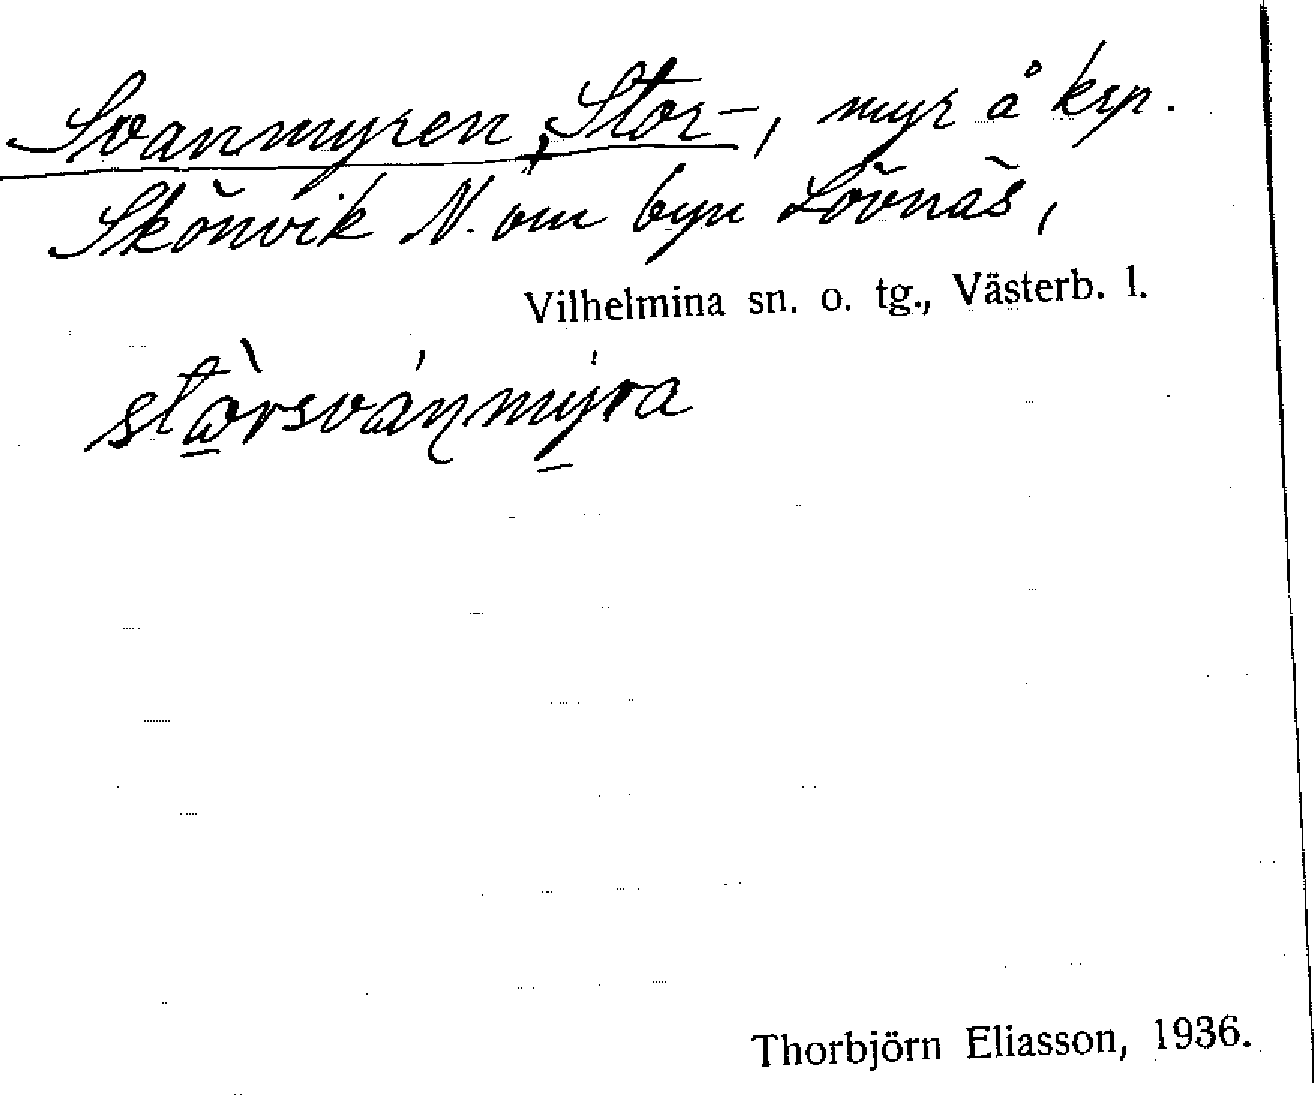 Svanmyren, Stor-, myr å krp.
Skönvik N. om byn Lövnäs,
Vilhelmina sn. o. tg., Västerb. l.
stòrsvánmýra
Thorbjörn Eliasson, 1936.